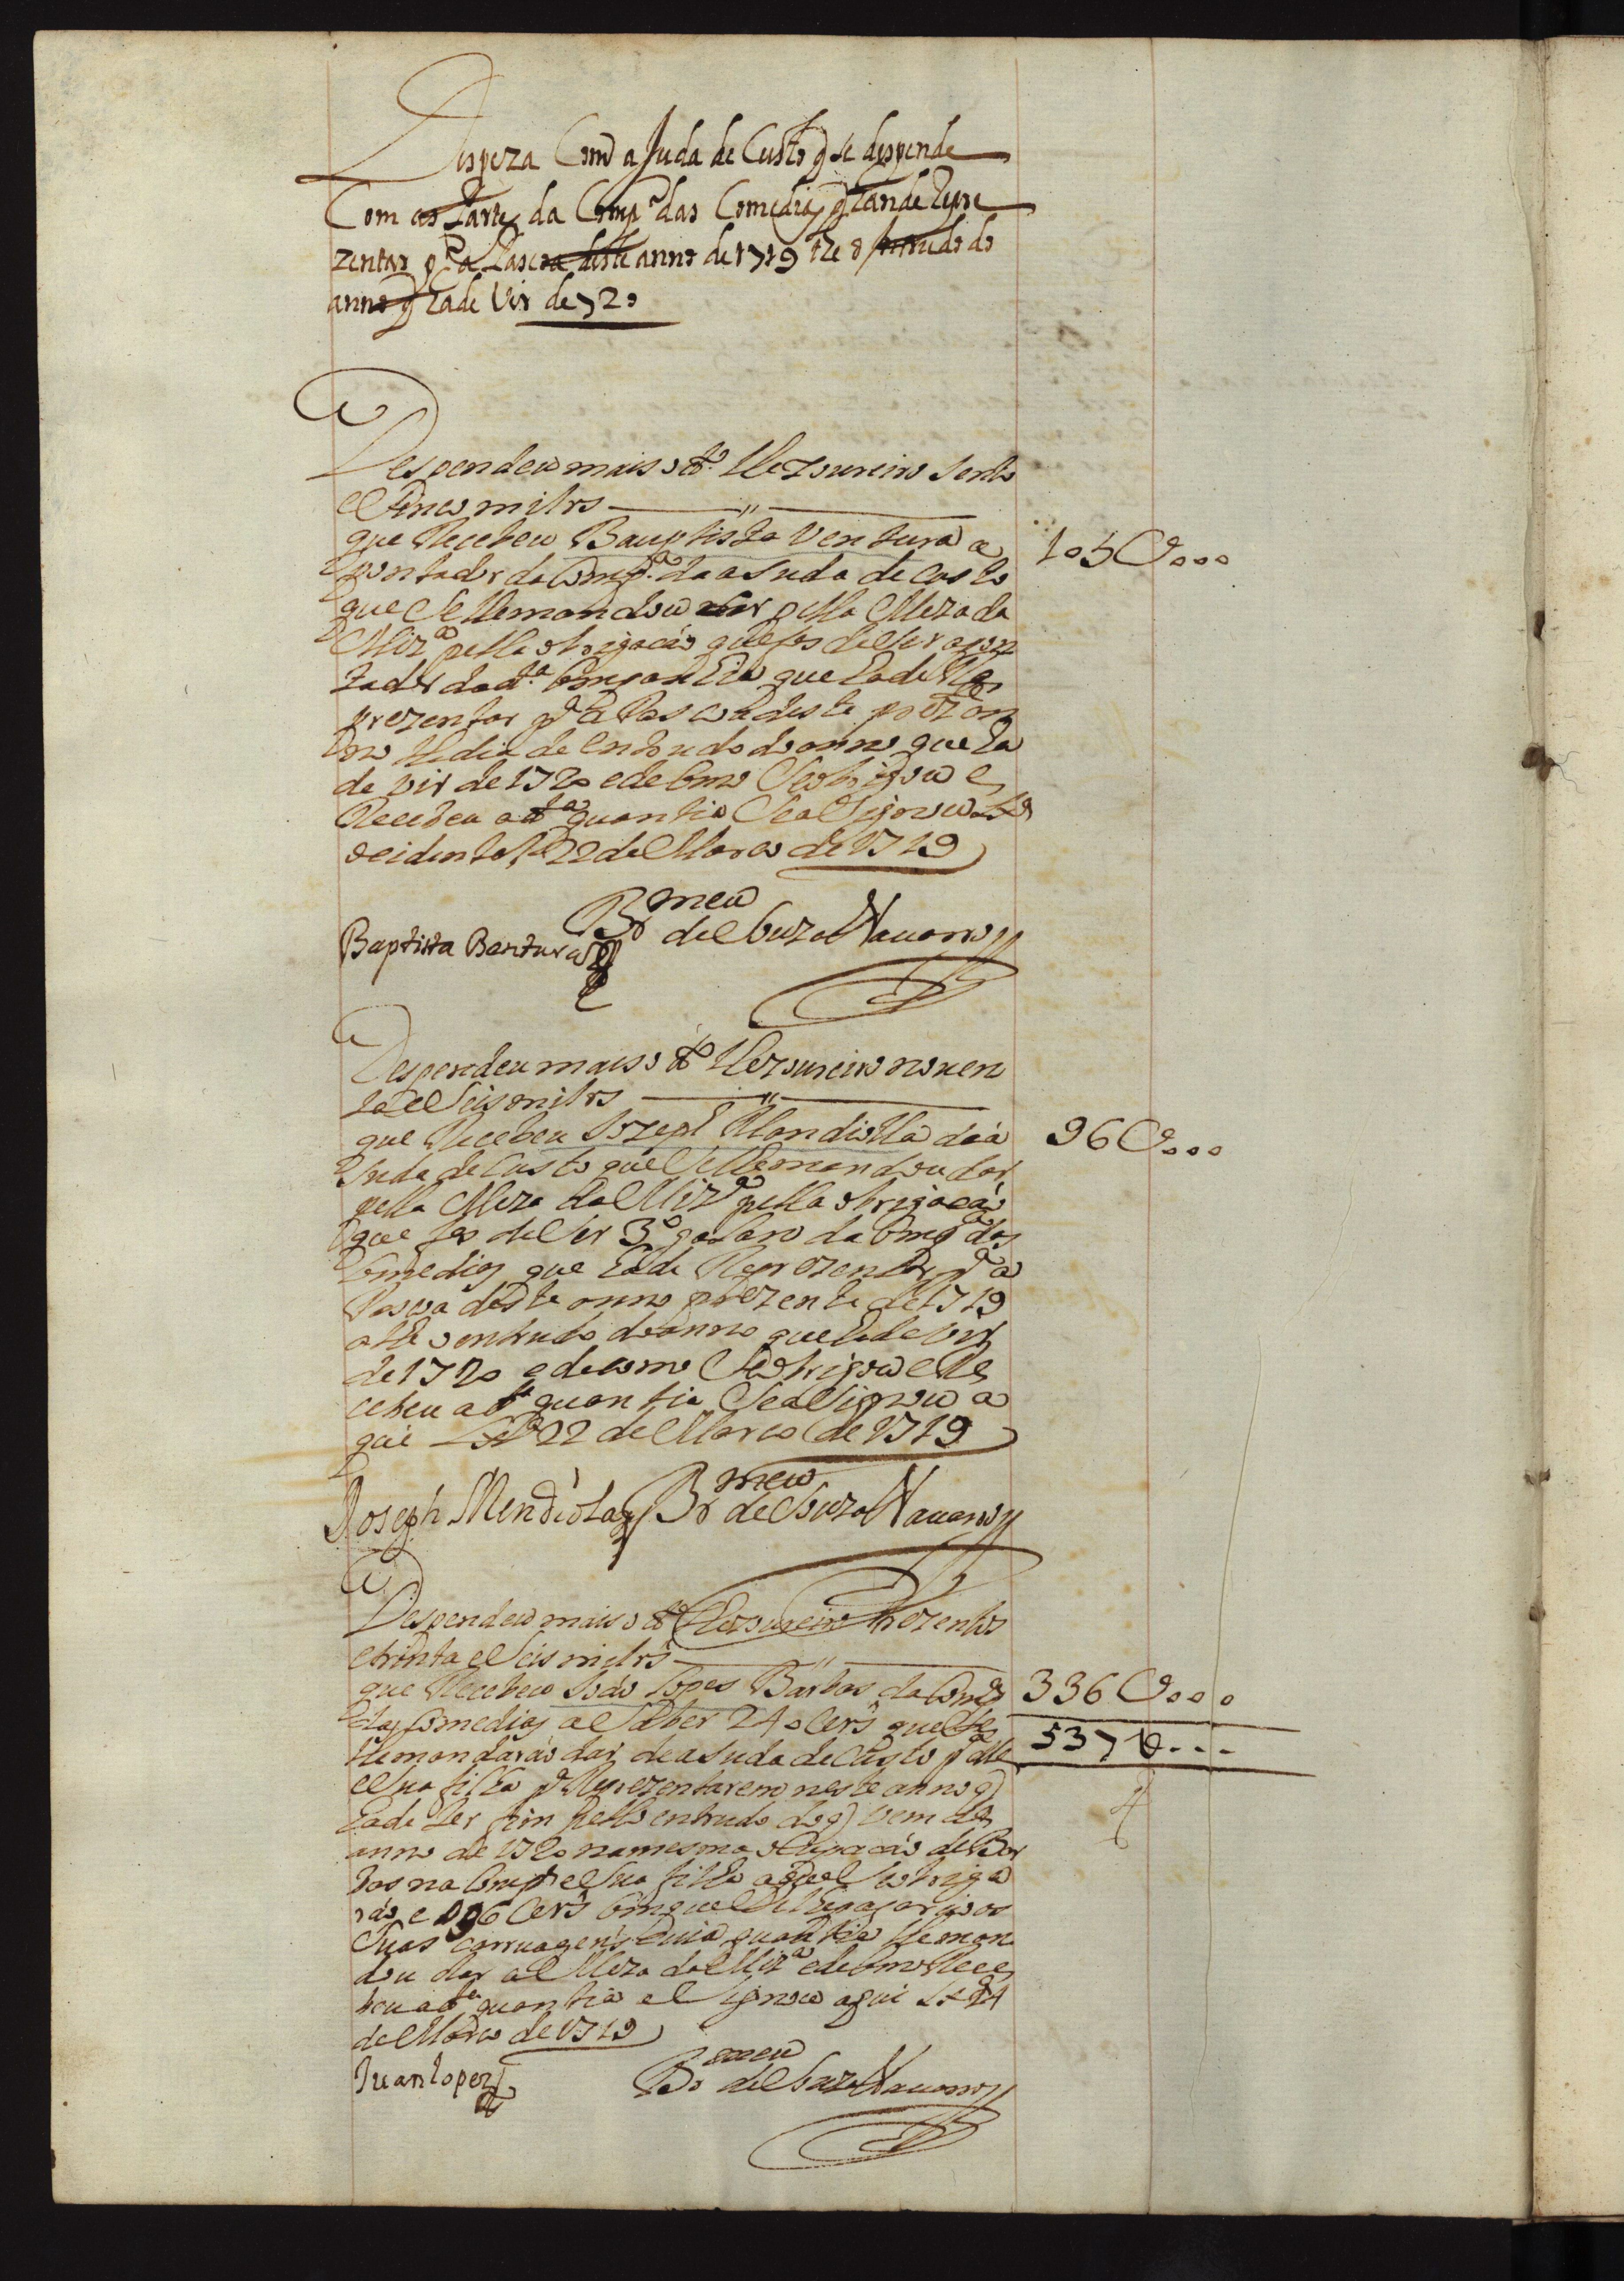 Despeza Com a Juda de Custo q̃ se despende
Com as Partes da Comp.ª das Comedias q̃ hande Repre
zentar p.ª a Pascoa deste anno de 1719 the o Intrudo do
anno q̃ hade Vir de 720
Despendeu mais o d.º thezoureiro sento
e Sinco mil rs
que Recebeu Bauptista Ventura a
pontador da Comp.ª da aJuda de Custo
que se lhe mandou dar pella Meza da
Miz.ª pella obrigacáo que fes de ser apon
tador da d.ª Companhia que hade Re
prezentar p.ª a Pascoa deste prez.te an
no the dia de entrudo do anno que ha
de vir de 1720 e de Como Se obrigou e
Recebeu a d.ª quantia Se aSignou Lx.ª
ocidental 22 de Marco de 1719
105U000
Baptista Bentura
Br.meu de Souza Navarro
Despendeu mais o d.º thezoureiro noven
ta e Seis mil rs
que Recebeu Jozeph Mandiolla da a
Juda de Custo que Se lhe mandou dar
pella Meza da Miz.ª pella obrigacáo
que fes de Ser 3.º galano da Comp.ª das
Comedias que hade Reprezentar p.ª a
Pascoa deste anno prezente de 1719
athe o entrudo do anno que hade vir
de 1720 e de como Se obrigou e Re
cebeu a d.ª quantia Se aSignou a
qui Lx.ª 22 de Marco de 1719
96U000
Joseph Mendiola
Br.meu de Souza Navarro
Despendeu mais o d.º thezoureiro trezentos
e trinta e Seis mil rs
que Recebeu Joáo Lopes Barbas da Comp.ª
das Comedias a Saber 240 Cer.s que Se
lhe mandaráo dar de aJuda de Custo p.ª elle
e Sua filha p.ª Reprezentarem neste anno q̃
hade ter fim pello entrudo do q̃ vem de
anno de 1720 na mesma ocupacáo de Bar
bas na Comp.ª e Sua filha a que Se obriga
ráo e 96 Cer.s Com que Se lhe pagar as
Suas carruagens Cuia quantia lhe man
dou dar a Meza da Miz.ª e de Como Rece
beu a d.ª quantia e Signou aqui Lx.ª 24
de Marco de 1719
336U000
537U000
Juan Lopez
Br.meu de Souza Navarro